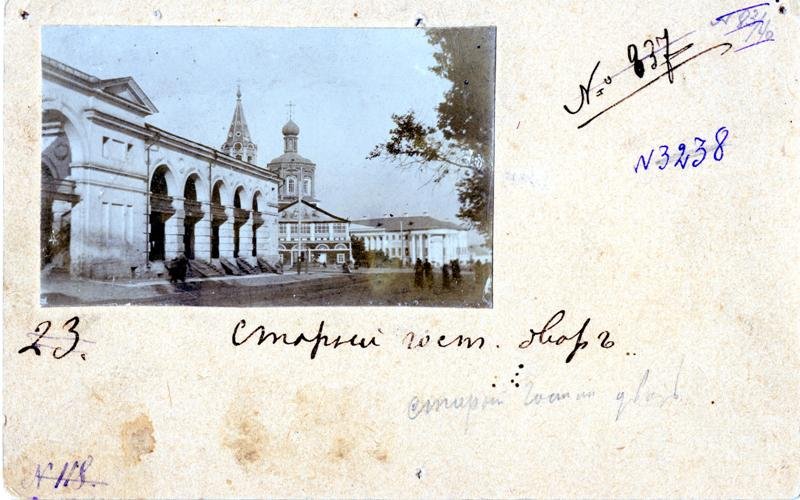 № 837
N3238
23.
Старый гост. дворъ
Старый Гостин дворъ
N 118.